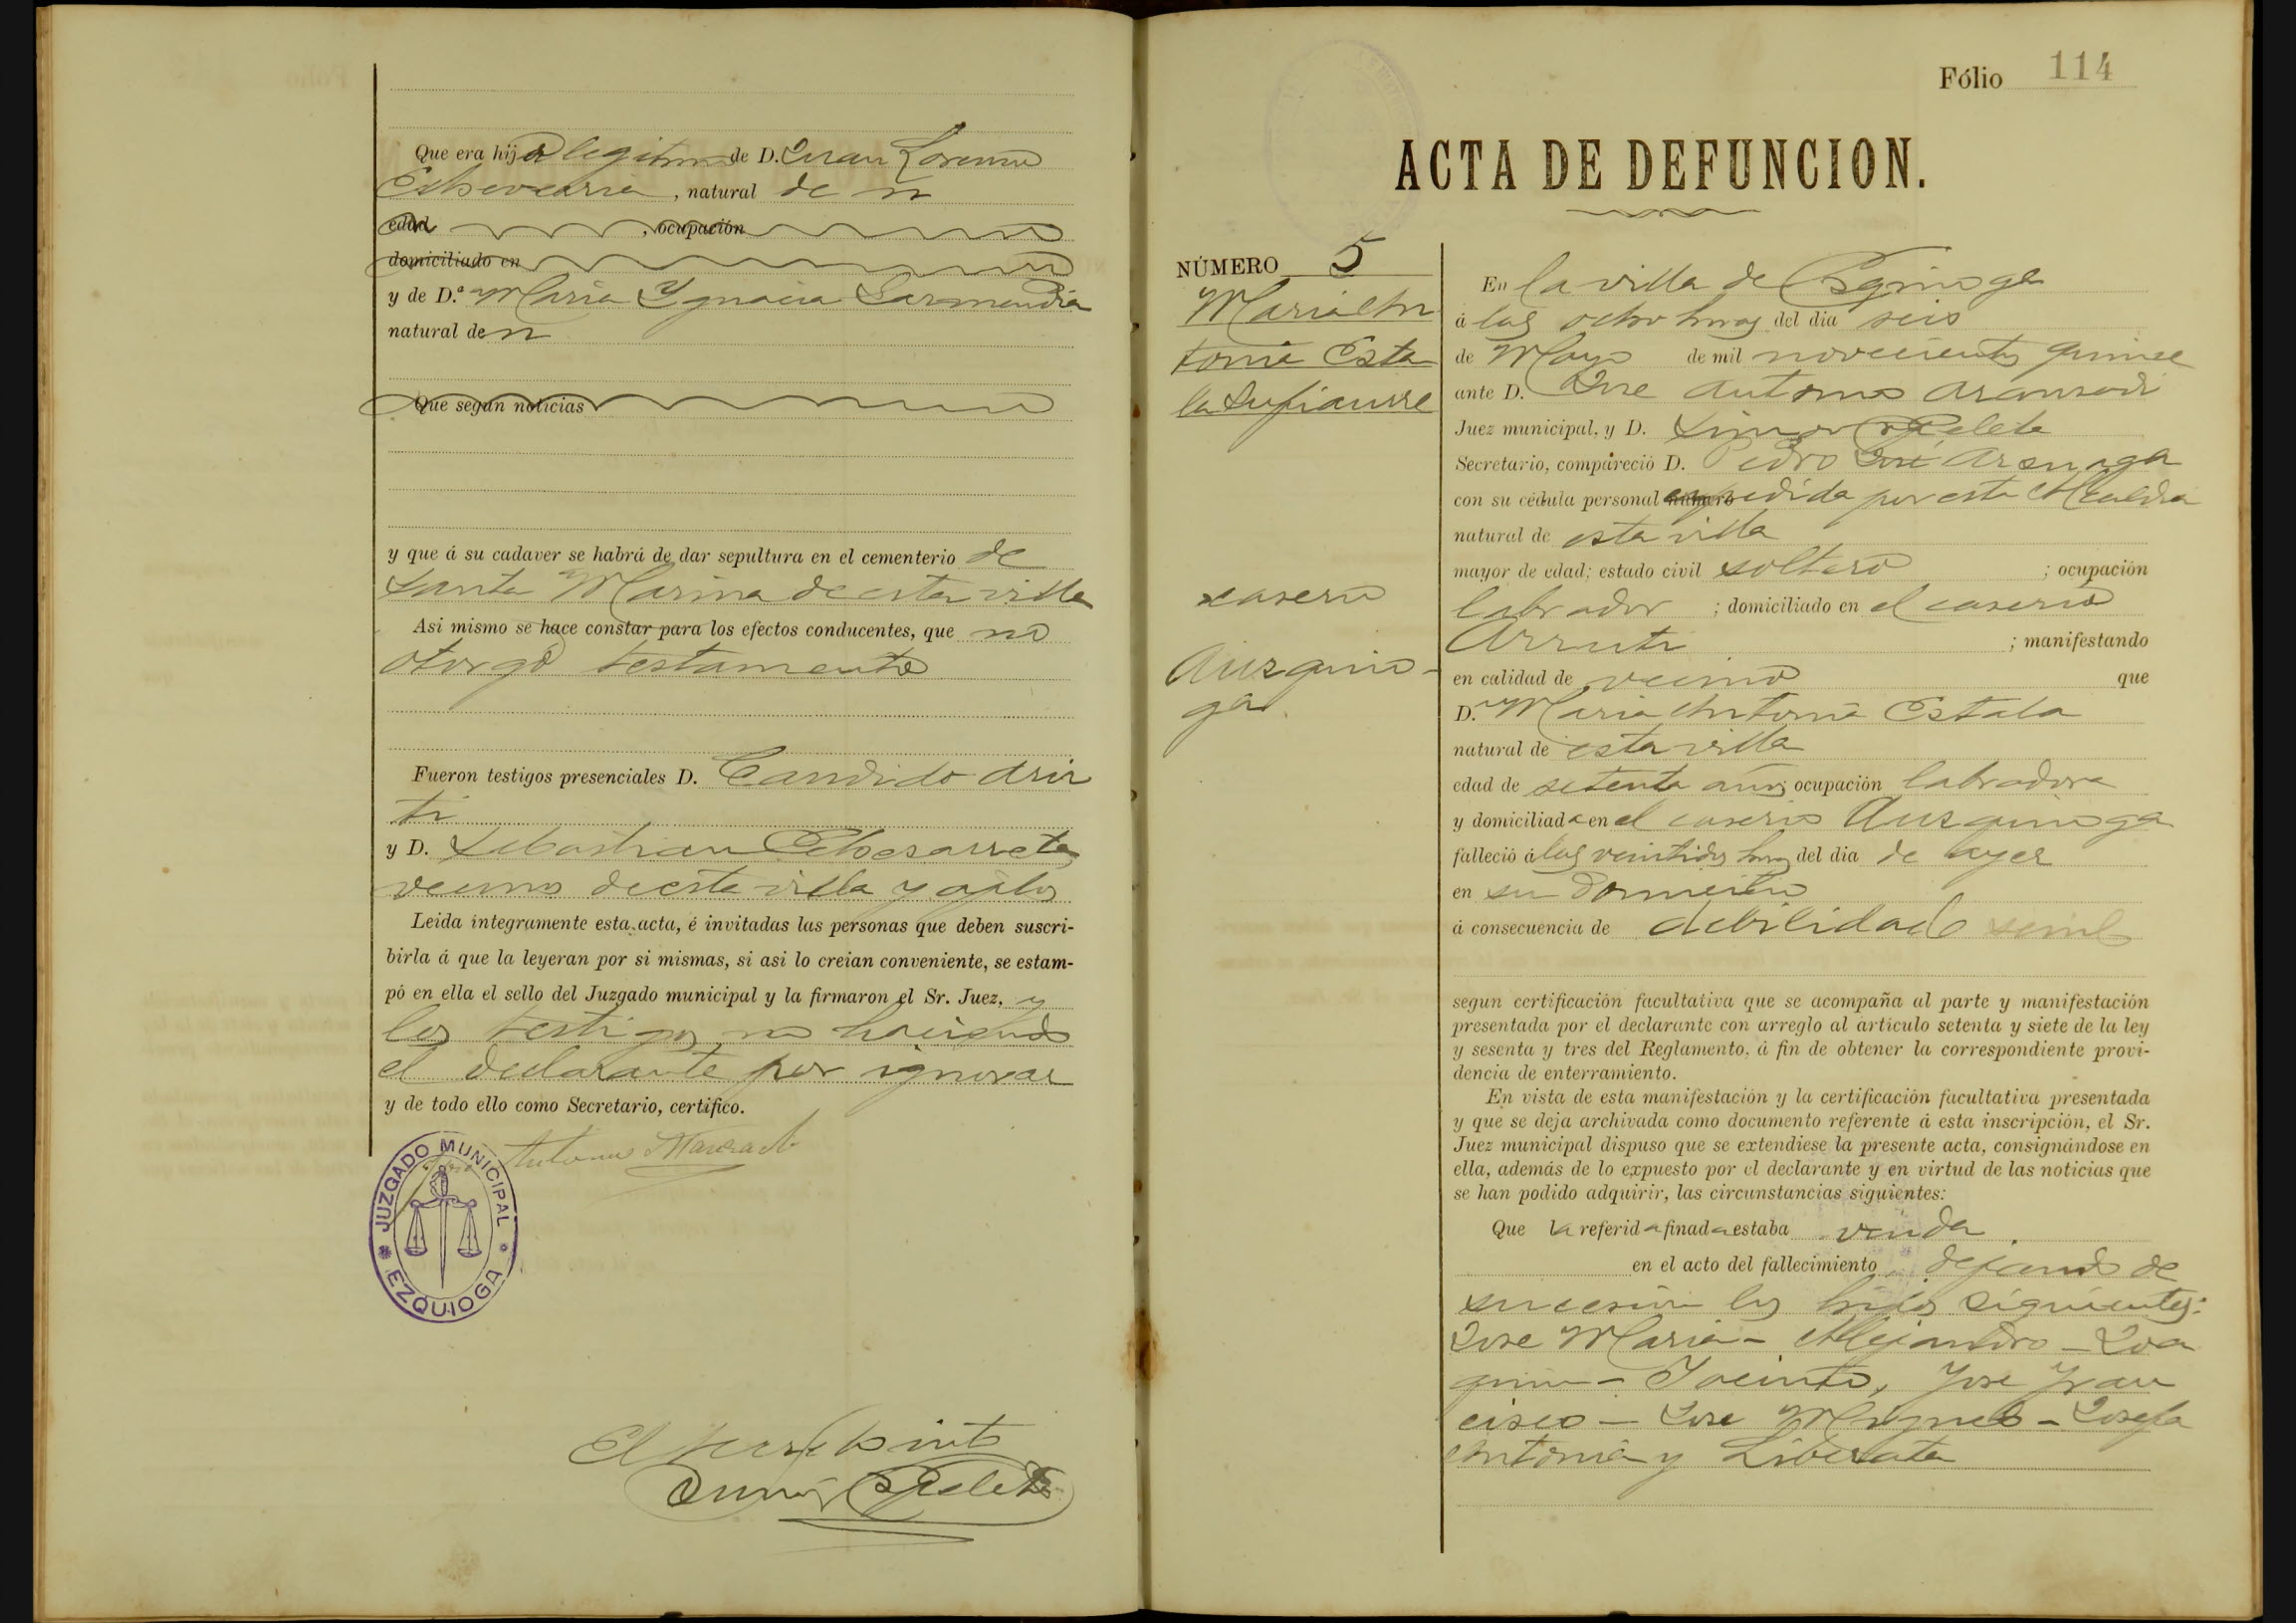 Que era hija legitima de D. Juan Lorenzo
Echeverria, natural de n
edad, ocupación
domiciliado en
y de D.ª Maria Ygnacia Garmendia
natural de n
Que segun noticias
y que á su cadaver se habrá de dar sepultura en el cementerio de
Santa Marina de esta villa
Asi mismo se hace constar para los efectos conducentes, que no
otorgó testamento
Fueron testigos presenciales D. Candido Arir
ti
y D. Sebastian Echezarreta
vecinos de esta villa y aptos
Leida integramente esta acta, é invitadas las personas que deben suscri-
birla á que la leyeran por si mismas, si asi lo creian conveniente, se estam-
pó en ella el sello del Juzgado municipal y la firmaron el Sr. Juez, y
los testigos no haciendo
el declarante por ignorar
y de todo ello como Secretario, certifico.
Antonio Aranzadi
JUZGADO MUNICIPAL
EZQUIOGA
Fólio 114
ACTA DE DEFUNCION.
NÚMERO 5
Maria An
tonia Esta
la
caserio
Auzquio-
ga
En la villa de Ezquioga
á las ocho horas del dia seis
de Mayo de mil novecientos quince
ante D. Jose Antonio Aranzadi
Juez municipal, y D. Simon
Secretario, compareció D. Pedro José Arsuaga
con su cédula personal número expedida por esta Alcaldia
natural de esta villa
mayor de edad; estado civil soltero; ocupación
labrador; domiciliado en el caserio
Arruti; manifestando
en calidad de vecino que
D.ª Maria Antonia Estala
natural de esta villa
edad de setenta años ocupación labradora
y domiciliada en el caserio Auzquioga
falleció á las veintidos horas del dia de ayer
en su domicilio
á consecuencia de debilidad senil
segun certificación facultativa que se acompaña al parte y manifestación
presentada por el declarante con arreglo al artículo setenta y siete de la ley
y sesenta y tres del Reglamento, á fin de obtener la correspondiente provi-
dencia de enterramiento.
En vista de esta manifestación y la certificación facultativa presentada
y que se deja archivada como documento referente á esta inscripción, el Sr.
Juez municipal dispuso que se extendiese la presente acta, consignándose en
ella, además de lo expuesto por el declarante y en virtud de las noticias que
se han podido adquirir, las circunstancias siguientes:
Que la referida finada estaba viuda
en el acto del fallecimiento dejando de
sucesión los hijos siguientes:
Jose Maria - Alejandro - Joa
quin - Jacinto, Jose Fran
cisco - Jose Miguel - Josefa
Antonia y Liberata